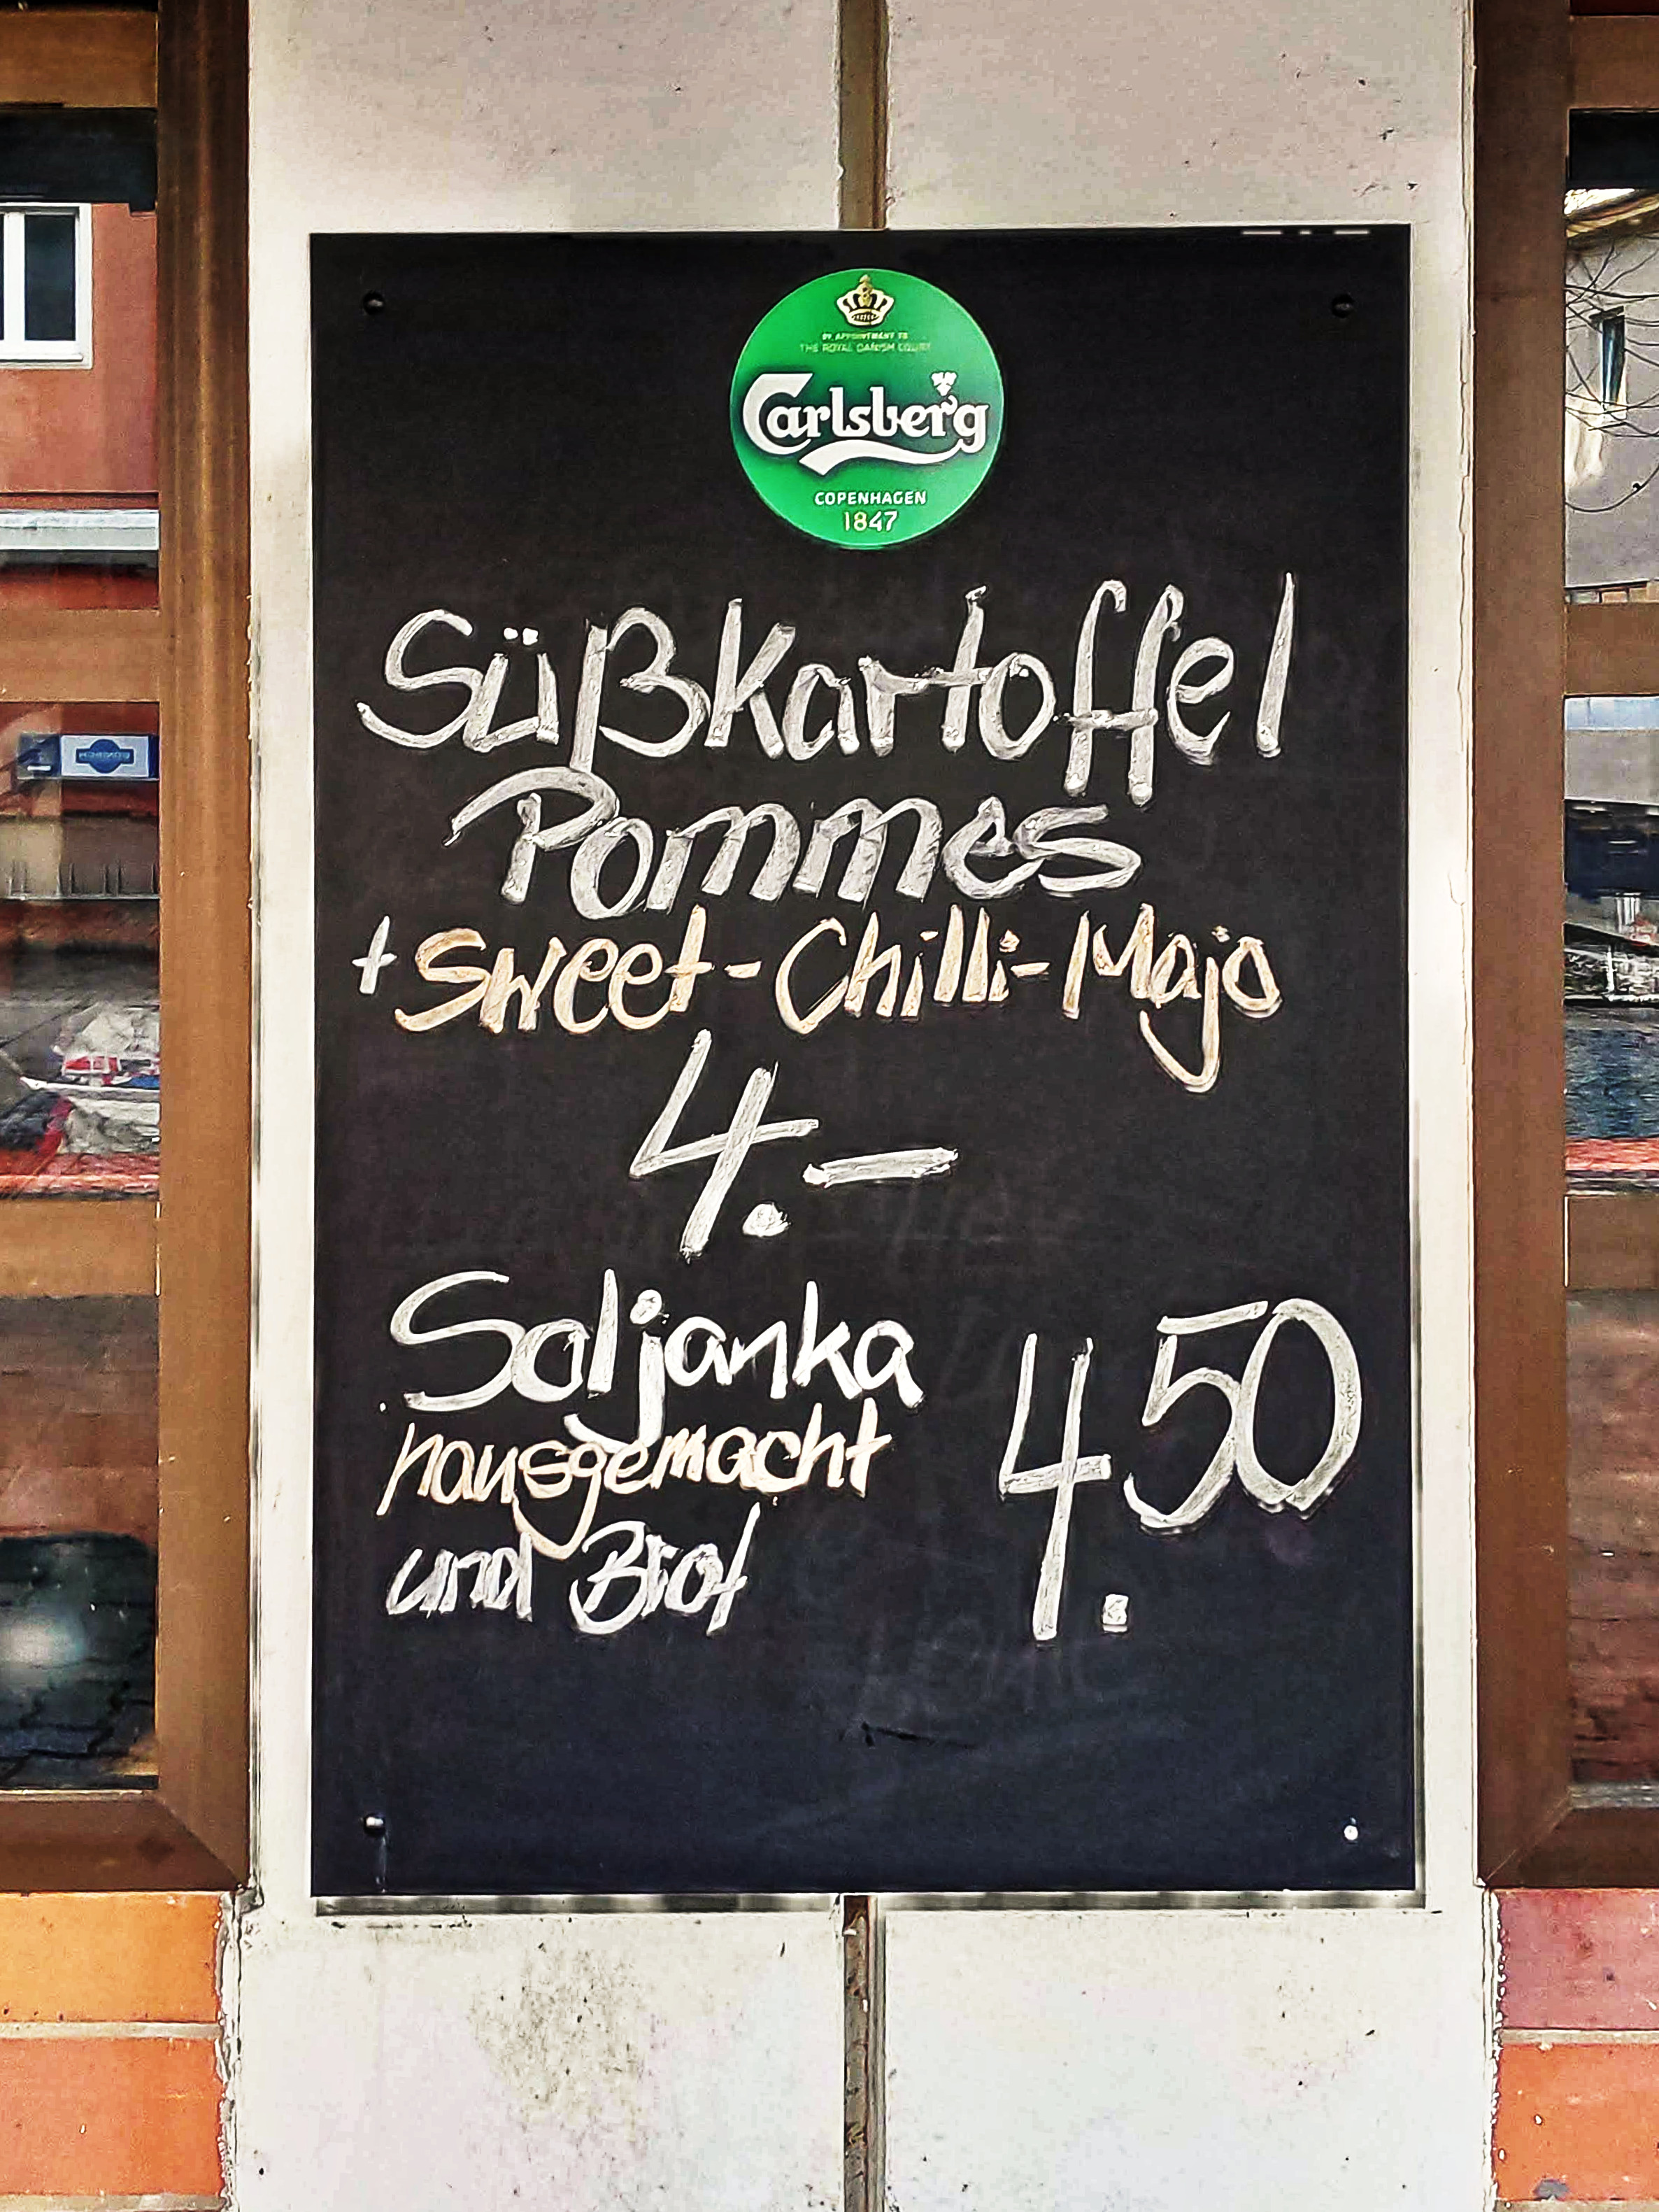 BY APPOINTMENT TO
THE ROYAL DANISH COURT
Carlsberg
COPENHAGEN
1847
Süßkartoffel
Pommes
+ Sweet-Chilli-Majo
4.-
Soljanka
hausgemacht
und Brot
4.50